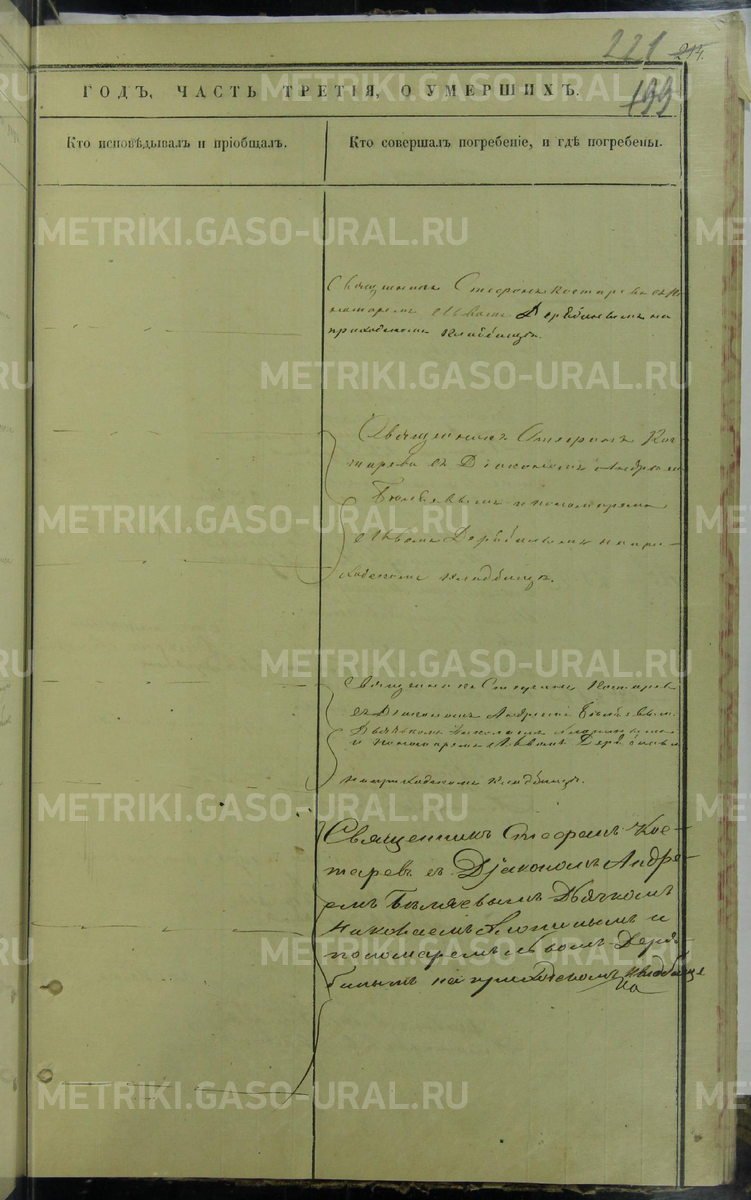 221 214.
199
ГОДЪ, ЧАСТЬ ТРЕТІЯ, О УМЕРШИХЪ.
Кто исповѣдывалъ и пріобщалъ.
Кто совершалъ погребеніе, и гдѣ погребены.
METRIKI.GASO-URAL.RU
Священникъ Стефанъ Костаревъ съ По
номаремъ Львомъ Дерябинымъ на
приходскомъ кладбищѣ.
Священникъ Стефанъ Кос
таревъ съ Діакономъ Андреемъ
Бѣляевымъ и пономаремъ
Львомъ Дерябинымъ на при-
ходскомъ кладбищѣ.
Священникъ Стефанъ Костаревъ
съ Діакономъ Андреемъ Бѣляевымъ
Дьячкомъ Николаемъ
и пономаремъ Львомъ Дерябинымъ
на приходскомъ кладбищѣ.
Священникъ Стефанъ Кос-
таревъ съ Діакономъ Андре-
емъ Бѣляевымъ Дьячкомъ
Николаемъ и
пономаремъ Львомъ Деря-
бинымъ на приходскомъ кладбище